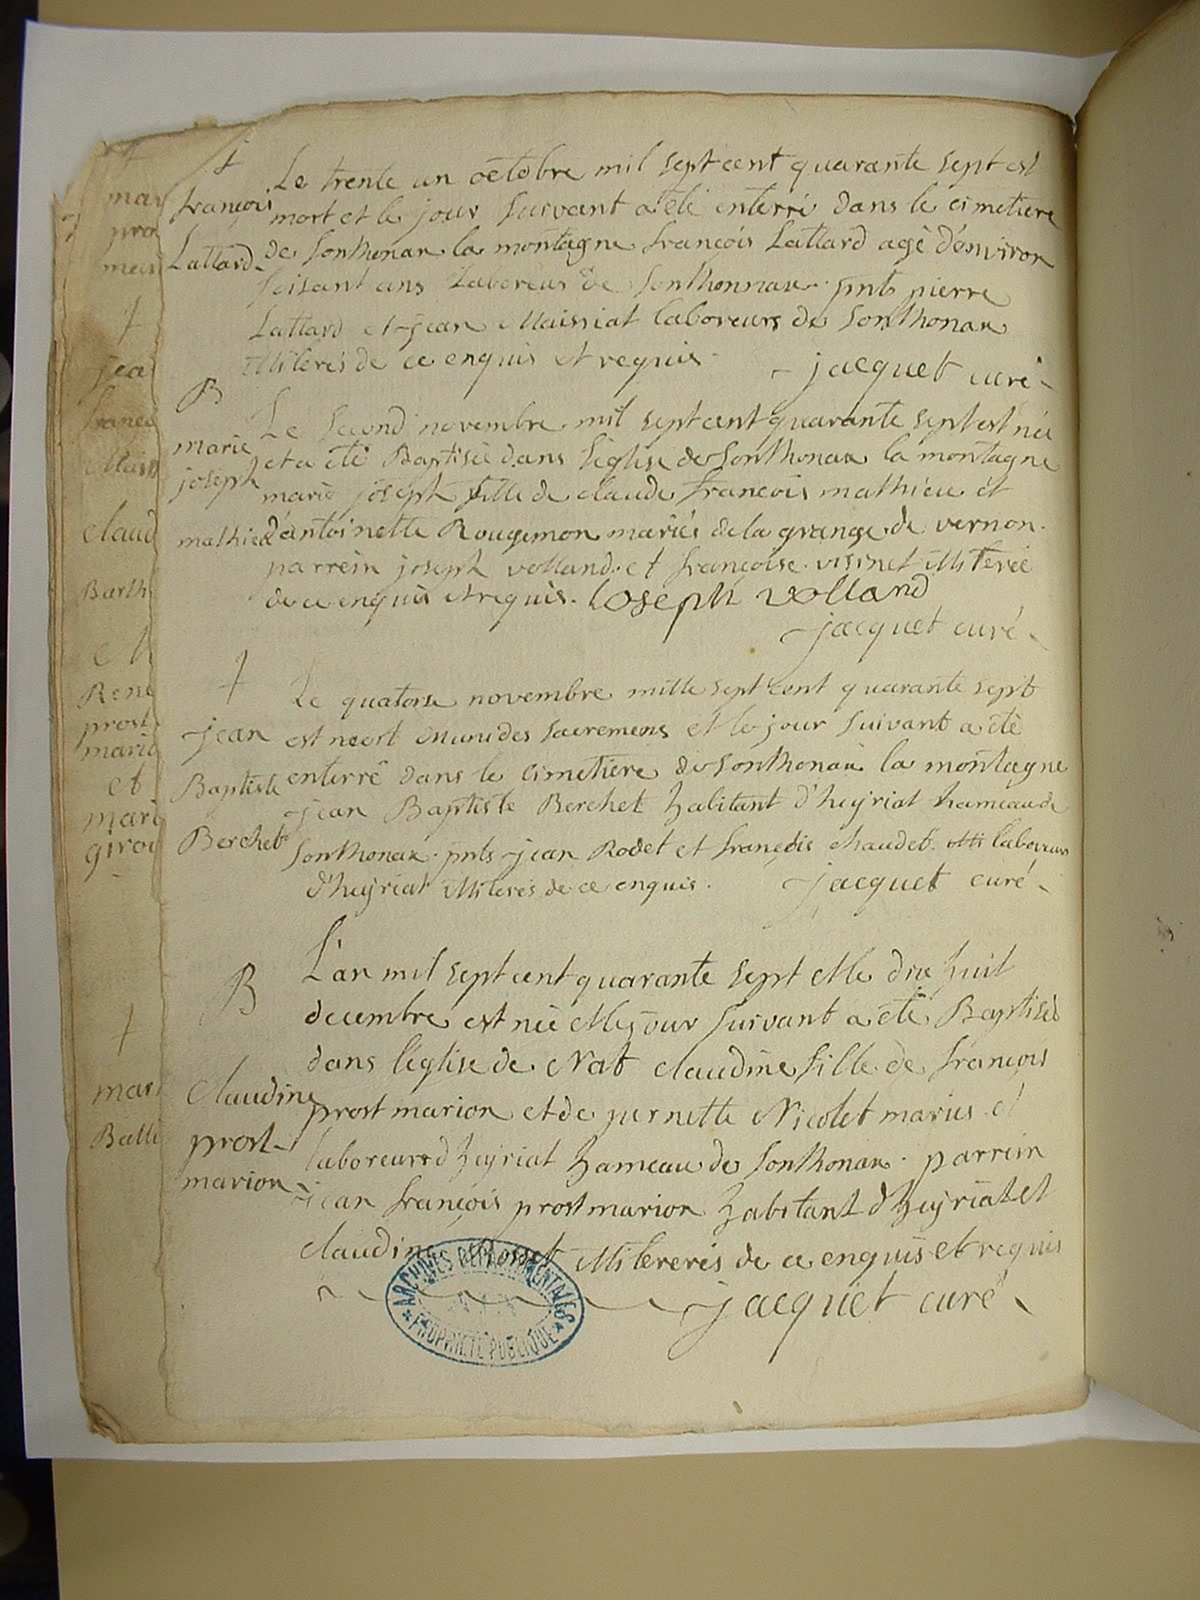 †
françois
Lattard
Le trente un octobre mil sept cent quarante sept est
mort et le jour suivant a été enterré dans le cimetiere
de Sonthonax la montagne françois Lattard agé d'environ
soisant ans Laboreur de Sonthonnax. pnts pierre
Lattard et jean Maissiat laboreurs de Sonthonax
illiterés de ce enquis et requis.
jacquet curé
B
marie
joseph
mathieu
Le second novembre mil sept cent quarante sept est née
et a été Baptisée dans l'église de Sonthonax la montagne
marie joseph fille de claude francois mathieu et
d'antoinette Rougemon mariés de la grange de vernon.
parrein joseph volland. et françoise visinet illiterée
de ce enquis et requis. Joseph volland
jacquet curé
†
jean
Baptiste
Berchet
Le quatorse novembre mille sept cent quarante sept
est mort munides sacremens et le jour suivant a été
enterré dans le cimetiere de Sonthonax la montagne
jean Baptiste Berchet habitant d'heyriat hameau de
Sonthonax. pnts jean Rodet et francois chaudet laboreurs
d'heyriat illiterés de ce enquis.
jacquet curé
B
claudine
prost
marion
L'an mil sept cent quarante sept et le dix huit
decembre est née et le jour suivant a été Baptisée
dans l'église de Nat claudine fille de françois
prost marion et de pernette Nicolet mariés et
laboreurs d'heyriat hameau de Sonthonax. parrein
jean françois prost marion habitant d'heyriat et
claudine illitererés de ce enquis et requis
jacquet curé
ARCHIVES DEPARTEMENTALES
AIN
PROPRIETE PUBLIQUE
†
mar
pro
mari
†
jea
franco
Maiss
claud
Barth
Rene
prost
marie
et
mari
girou
†
mari
Balli